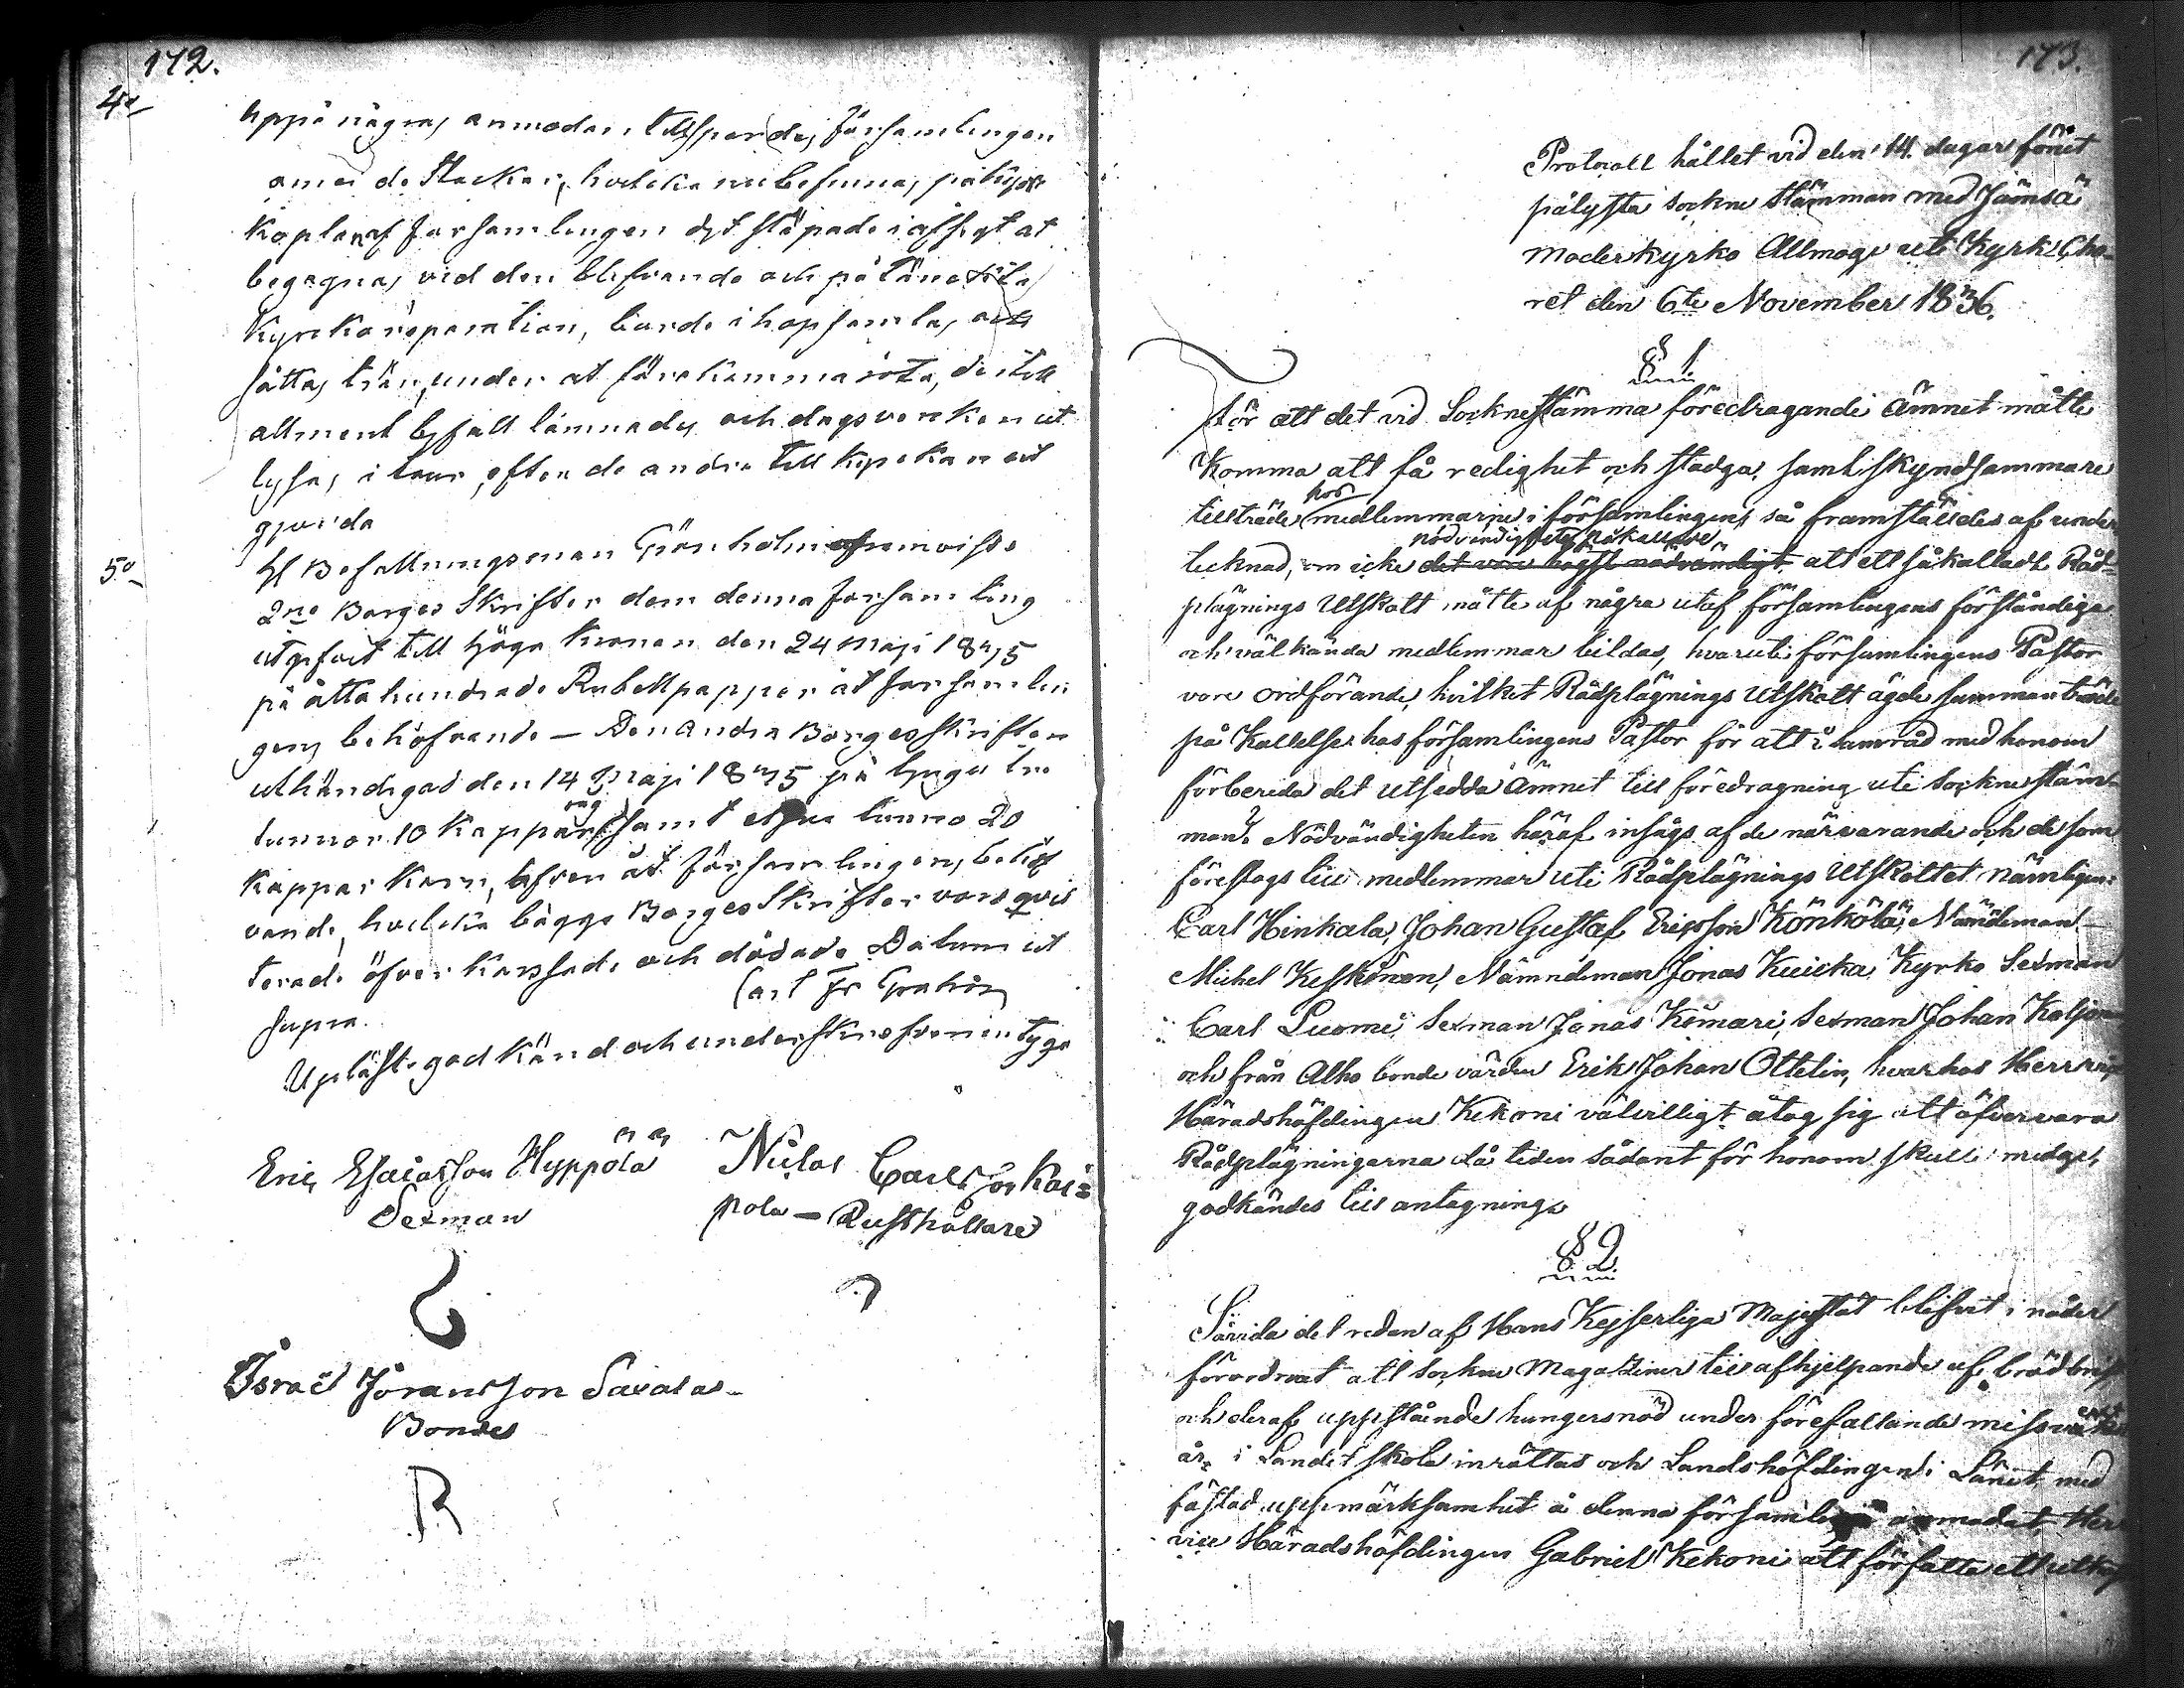 172.
4o
uppå några anmodan tillspordes Församlingen
om de Stockar, hvilka nu befinnas på kyrko
af Församlingen dit släpade i afsigt at
begagnas vid den blifvande och påtänckta
Kyrko reparation, borde ihopsamlas och
sättas under at förekomma röta, dertill
allment byfall lämnades och dagsverken ut
lysas i tour, efter de andra till Kyrkan ut
gjorda
5o
H Befallningsman Grönholm
2ne Borges Skrifter dem denna Församling
utgifvit till Höga Kronan den 24 Maji 1835
på åtta hundrade Rubel papper åt Församlin
gens behöfvande — Den andra Borgesskriften
uthändigad den 14 Maji 1835 på tjugu tre
tunnor 10 Kappar råg samt tunna 20
Kappar Korn, äfven åt Församlingens behöf
vande, hvilka bägge Borges Skrifter voro qvit
terade öfver Korssade och dödade. Datum ut
supra.
Carl Fr
Upläst godkänd och underskrefven intyga
Eric Esaiasson Hyppölä
Sexman
Niclas Carlsson Kai=
pola — Rusthållare
Israel Jöransson Savala
Bonde
173.
Protocoll hållet vid den 14. dagar förut
pålysta sockne stämman med Jämsä
Moderkyrko Allmoge uti Kyrk Cho-
ret den 6te November 1836.
§ 1
För att det vid Socknestämma föredragande ämnet måtte
Komma att få redighet och stadga, samt skyndsammare
tillträde hos medlemmarne i församlingen, så framstäldes af under
tecknad, om icke det vore högst nödvändigt nödvändigheten påkallade att ett såkalladt Råd-
plägnings Utskott måtte af några utaf församlingens förståndiga
och välkända medlemmar bildas, hvaruti församlingens Pastor
vore ordförande, hvilket Rådplägnings Utskott ägde sammanträda
på Kallelse hos församlingens Pastor för att i samråd med honom
förbereda det utsedda ämnet till föredragning uti sockne stäm-
man. Nödvändigheten häraf insågs af de närvarande och de som
föreslogs till medlemmar uti Rådplägnings Utskottet nämligen:
Carl Hinkala, Johan Gustaf Ericsson Könkölä, Nämdeman
Michel Keskinen, Nämndeman Jonas Kuicka, Kyrko Sexman
Carl Luomi, Sexman Jonas Kömäri, Sexman Johan
och från Alho bonde värden Erik Johan Ottelin, hvarhos Herr vice
Häradshöfdingen Kekoni välvilligt åtog sig att öfvervara
Rådplägningarna då tiden sådant för honom skulle medge,
godkändes till antagning.
§ 2
Särida det redan af Hans Kejserliga Majestät blifvit i nåder
förordnat att socken Magaziner till afhjelpande af brödbrist
och deraf uppstående hungersnöd under förefallande missväxt
år, i Landet skola inrättas och Landshöfdingen i Länet, med
fästad uppmärksamhet å denna församling anmodat Herr
vice Häradshöfdingen Gabriel Kekoni att författa ett